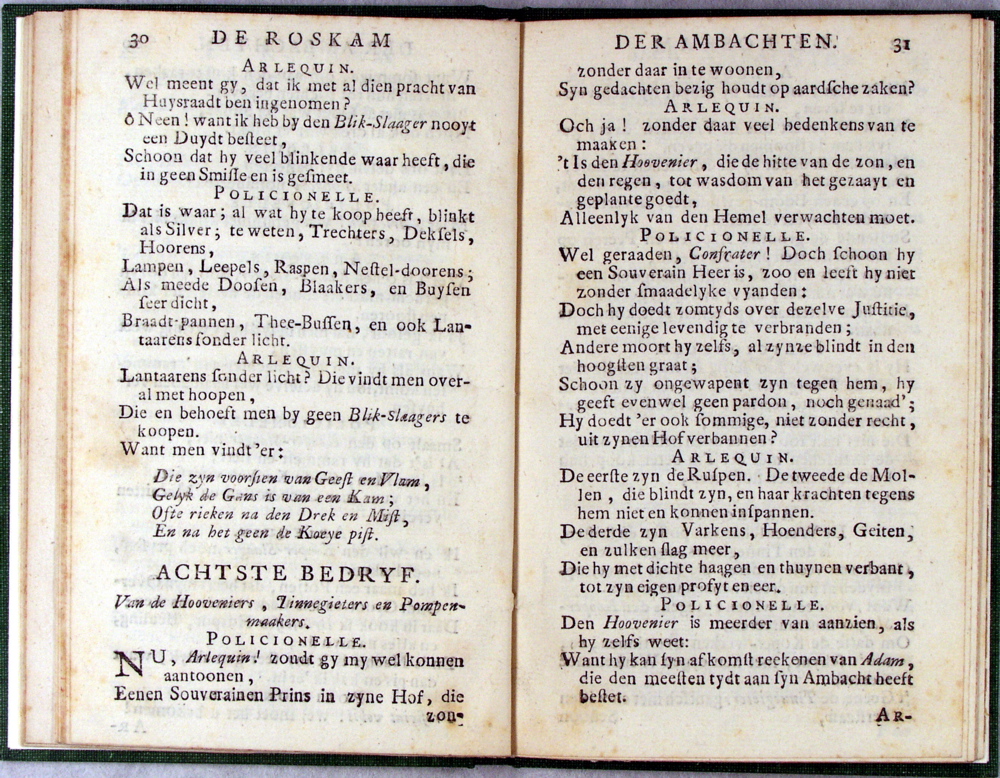 30 DE ROSKAM
ARLEQUIN.
Wel meent gy, dat ik met al dien pracht van
Huysraadt ben ingenomen?
ô Neen! want ik heb by den Blik-Slaager nooyt
een Duydt besteet,
Schoon dat hy veel blinkende waar heeft, die
in geen Smisse en is gesmeet.
POLICIONELLE.
Dat is waar; al wat hy te koop heeft, blinkt
als Silver; te weten, Trechters, Deksels,
Hoorens,
Lampen, Leepels, Raspen, Nestel-doorens;
Als meede Doosen, Blaakers, en Buysen
seer dicht,
Braadt-pannen, Thee-Bussen, en ook Lan-
taarens sonder licht.
ARLEQUIN.
Lantaarens sonder licht? Die vindt men over-
al met hoopen,
Die en behoeft men by geen Blik-slaagers te
koopen.
Want men vindt 'er:
Die zyn voorsien van Geest en Vlam,
Gelyk de Gans is van een Kam;
Ofte rieken na den Drek en Mist,
En na het geen de Koeye pist.
ACHTSTE BEDRYF.
Van de Hooveniers, Tinnegieters en Pompen-
maakers.
POLICIONELLE.
NU, Arlequin! zondt gy my wel konnen
aantoonen,
Eenen Souverainen Prins in zyne Hof, die
zon-
DER AMBACHTEN. 31
zonder daar in te woonen,
Syn gedachten bezig houdt op aardsche zaken?
ARLEQUIN.
Och ja! zonder daar veel bedenkens van te
maaken:
't Is den Hoovenier, die de hitte van de zon, en
den regen, tot wasdom van het gezaayt en
geplante goedt,
Alleenlyk van den Hemel verwachten moet.
POLICIONELLE.
Wel geraaden, Confrater! Doch schoon hy
een Souverain Heer is, zoo en leeft hy niet
zonder smaadelyke vyanden:
Doch hy doedt zomtyds over dezelve Justitie,
met eenige levendig te verbranden;
Andere moort hy zelfs, al zynze blindt in den
hoogsten graat;
Schoon zy ongewapent zyn tegen hem, hy
geeft evenwel geen pardon, noch genaad';
Hy doedt 'er ook sommige, niet zonder recht,
uit zynen Hof verbannen?
ARLEQUIN.
De eerste zyn de Ruspen. De tweede de Mol-
len, die blindt zyn, en haar krachten tegens
hem niet en konnen inspannen.
De derde zyn Varkens, Hoenders, Geiten,
en zulken slag meer,
Die hy met dichte haagen en thuynen verbant,
tot zyn eigen profyt en eer.
POLICIONELLE.
Den Hoovenier is meerder van aanzien, als
hy zelfs weet:
Want hy kan syn afkomst reekenen van Adam,
die den meesten tydt aan syn Ambacht heeft
bestet.
AR-